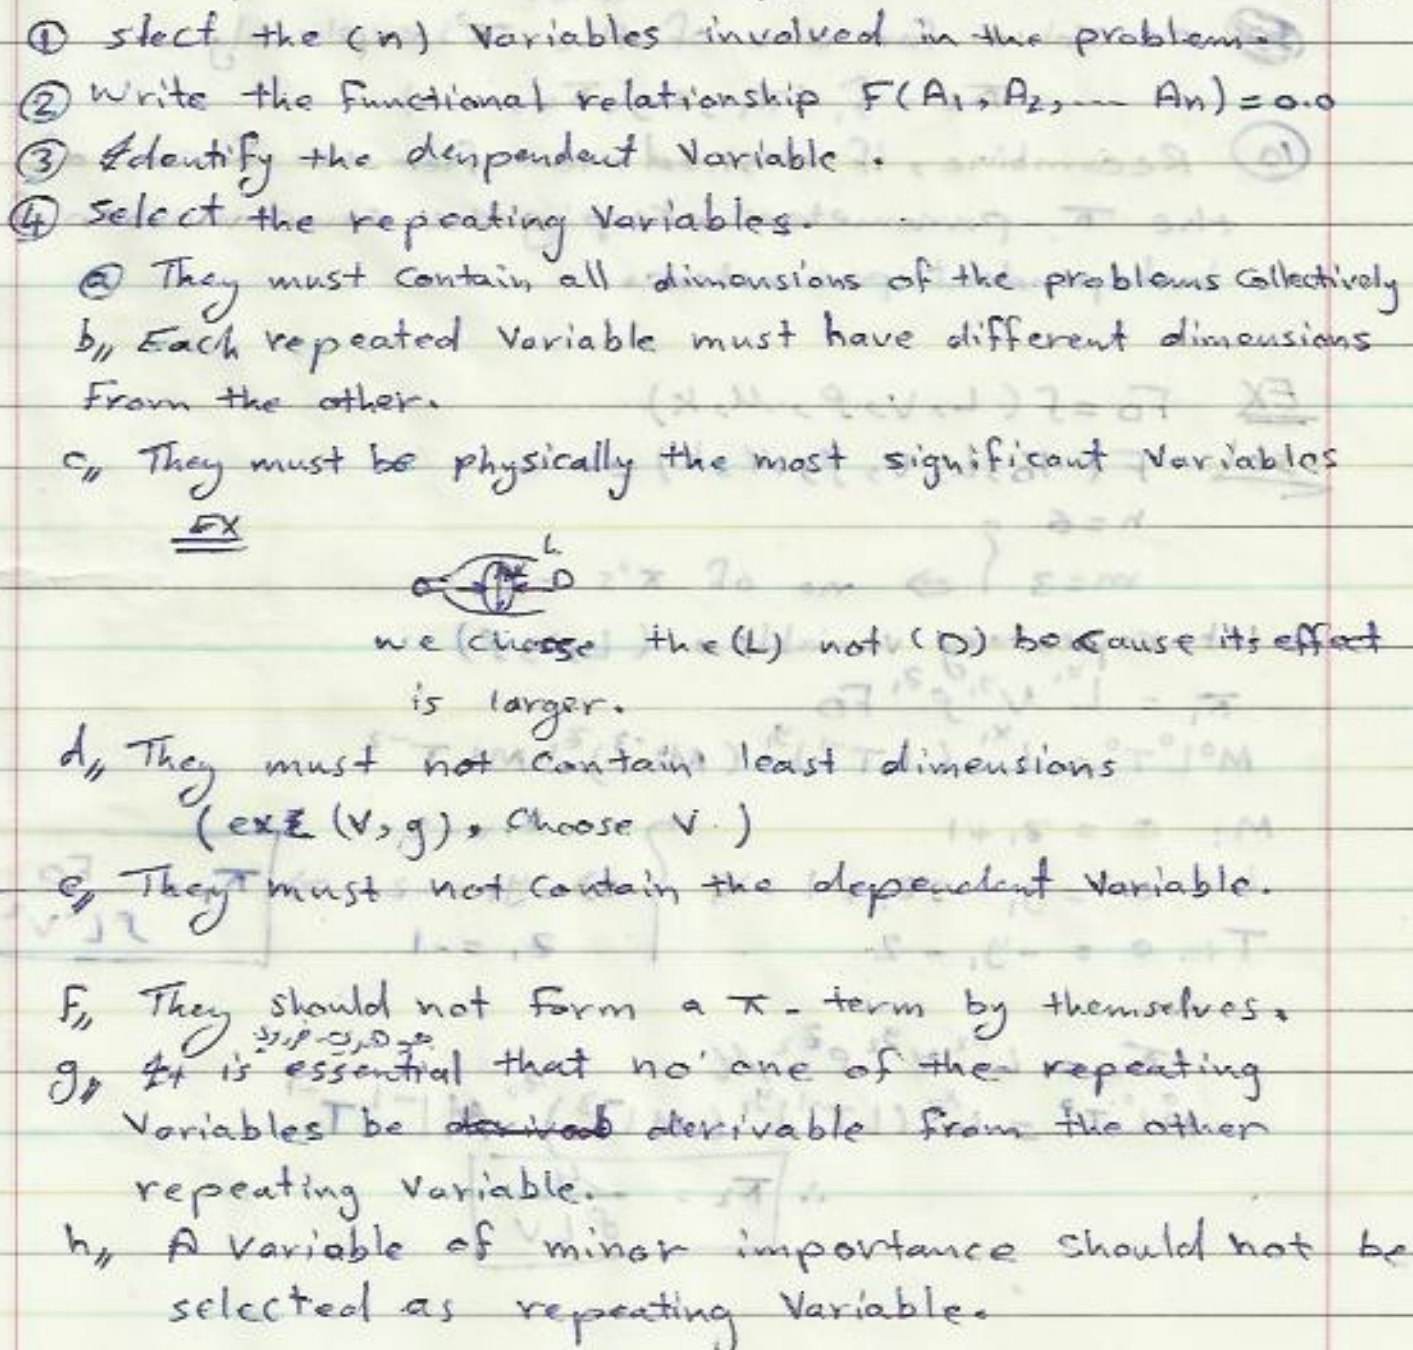 ① slect the (n) Variables involved in the problem.
② Write the Functional relationship F(A1, A2, ---- An) = 0.0
③ Identify the denpendent Variable.
④ Select the repeating Variables.
ⓐ They must contain all dimensions of the problems Collectively
b,, Each repeated Variable must have different dimensions
From the other.
c,, They must be physically the most significant Variables
EX
L
D
we choose the (L) not (D) because its effect
is larger.
d,, They must not contain least dimensions
(ex: (V, g), Choose V.)
e,, They must not contain the dependent Variable.
F,, They should not form a π-term by themselves.
g,, It is essential that no one of the repeating
Variables be derivable from the other
repeating Variable.
h,, A Variable of minor importance should not be
selected as repeating Variable.